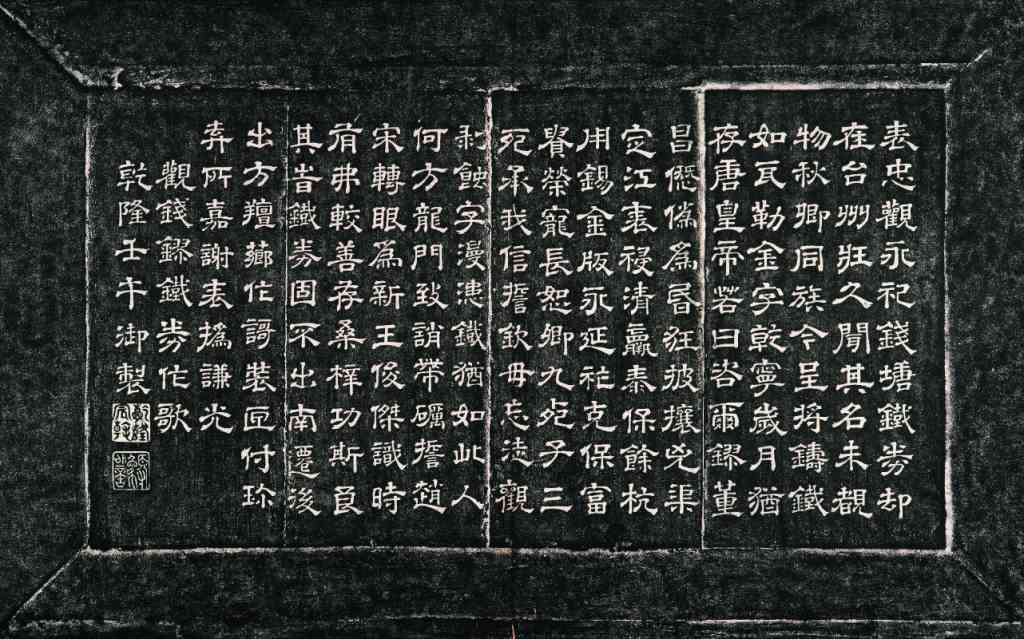 表忠觀永祀錢塘鐵券却
在台州久聞其名未覩
物秋卿同族令呈将鑄鐵
如瓦勒金字乾寧歲月猶
存唐皇帝若曰咨爾鏐董
昌僭偽為昏狂披攘兇渠
定江表祲清贏泰保餘杭
用錫金版永延祚克保富
貴榮寵長恕卿九死子三
死承我信誓欽毋忘觀
剝蝕字漫漶鐵猶如此人
何方龍門致誚帶礪誓趙
宋轉眼為新王俊傑識時
有弗較善存桑梓功斯良
其昔鐵券固不出南遷後
出方羶薌作謌裝匣付珍
弆所嘉謝表撝謙光
觀錢鏐鐵券作歌
乾隆壬午御製